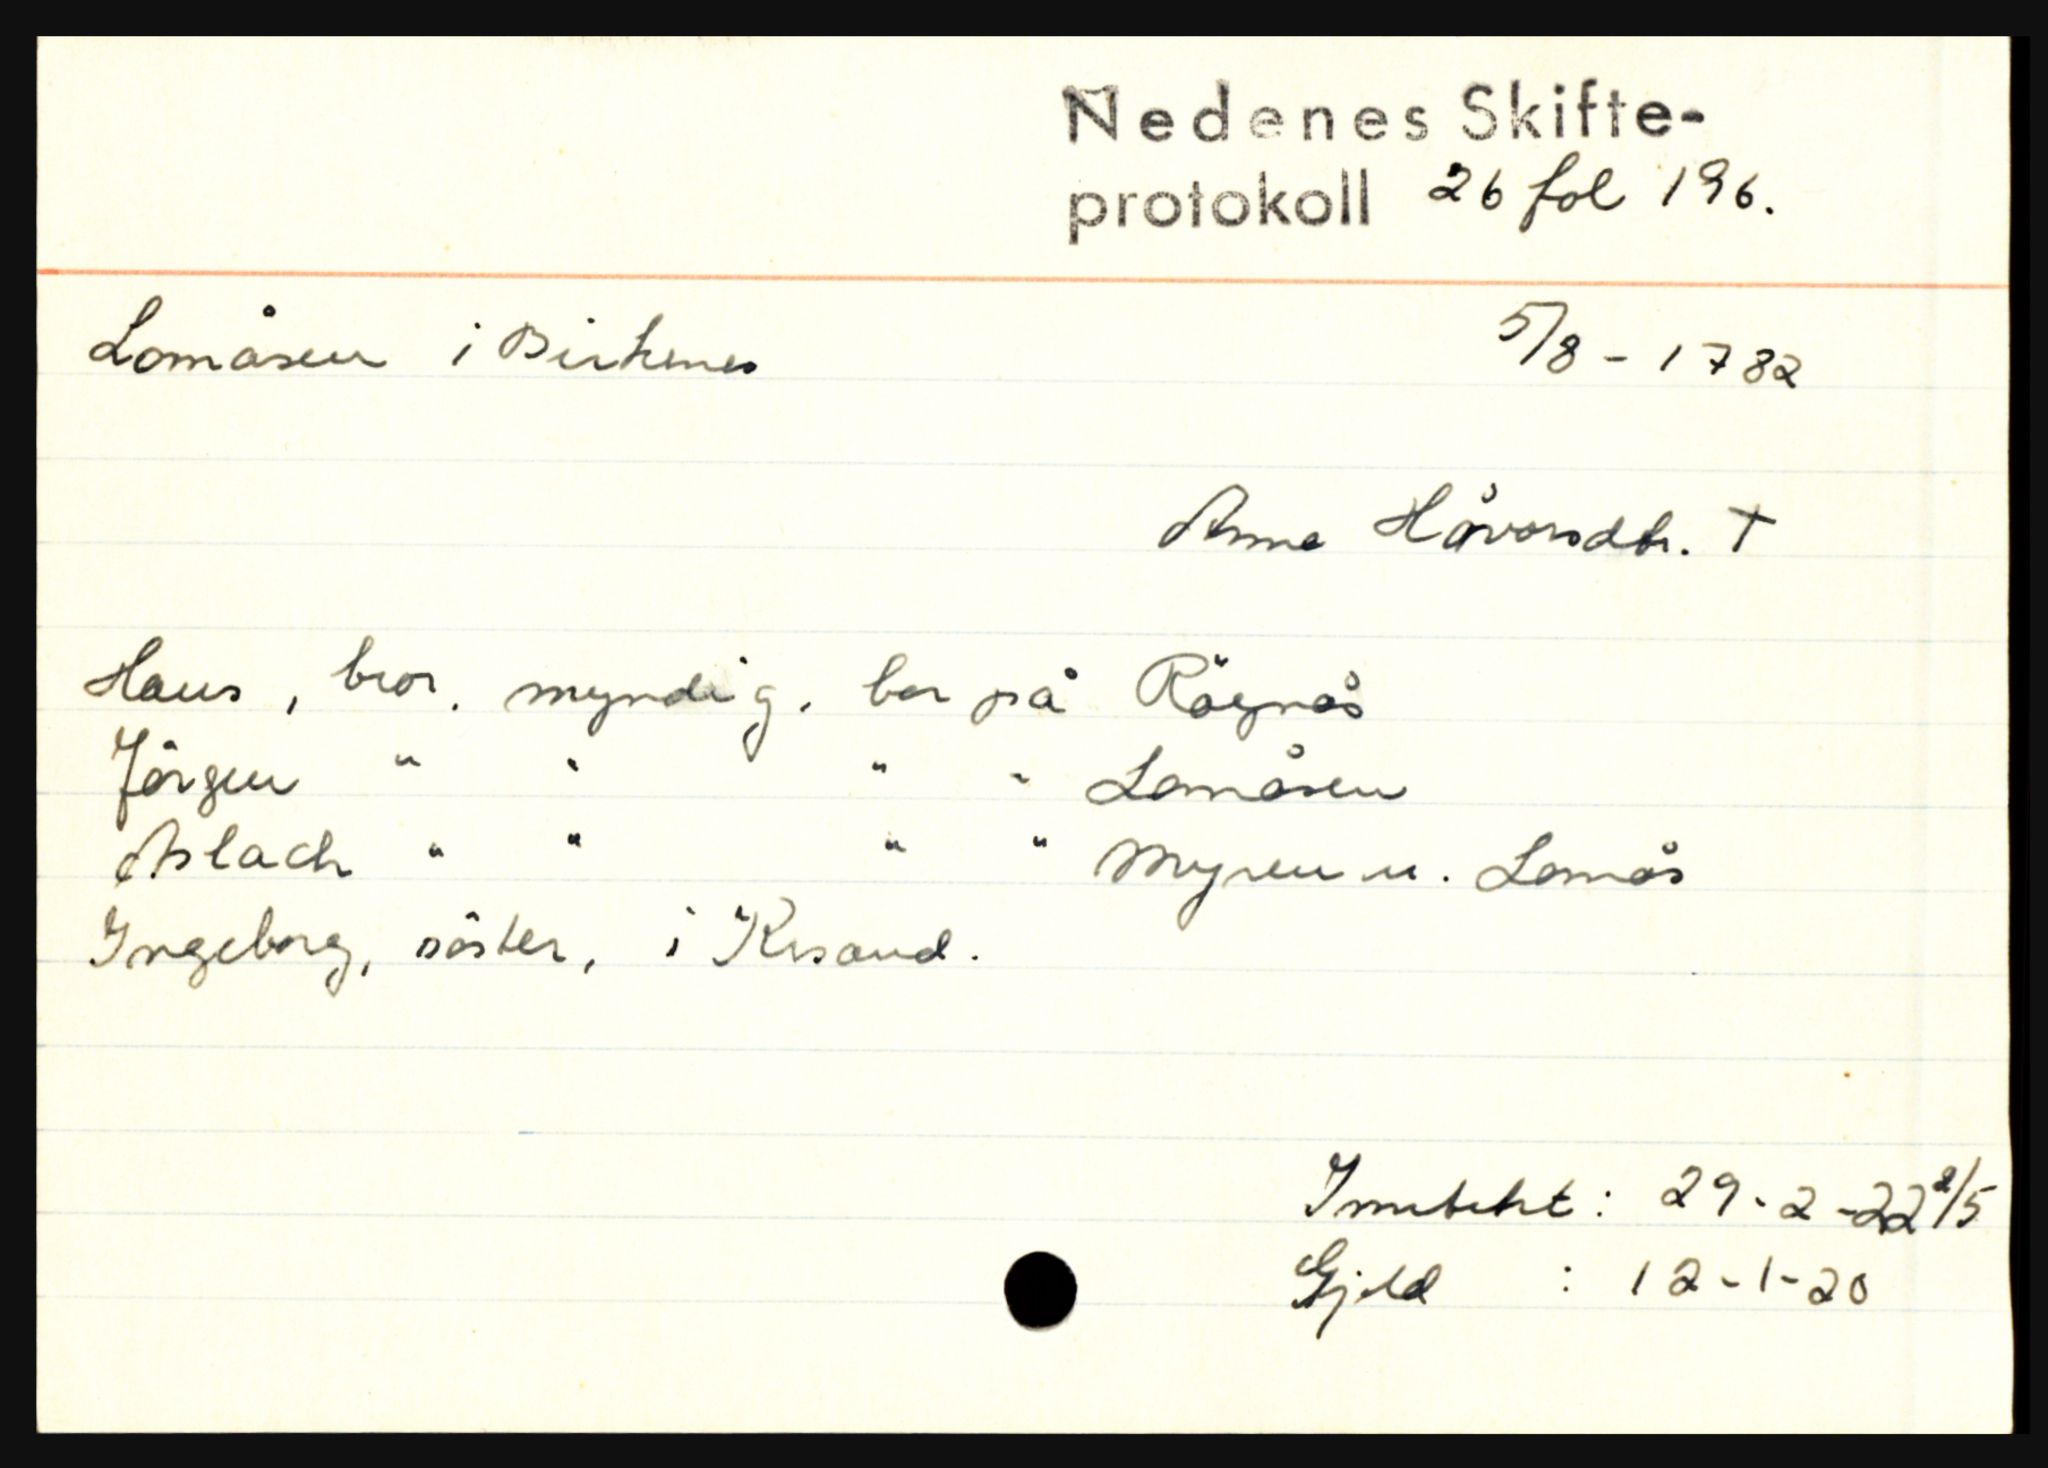 Nedenes Skifte-
protokoll 26 fol 196.
Lomåsen i Birkenes 5/8 - 1782
Anne Håvorsdtr. †
Hans, bror, myndig, bor på
Jörgen " " " " Lomåsen
Aslach " " " " Myren u. Lomås
Ingeborg, söster, i Krsand.
: 29-2-22 2/5
Gjeld : 12-1-20